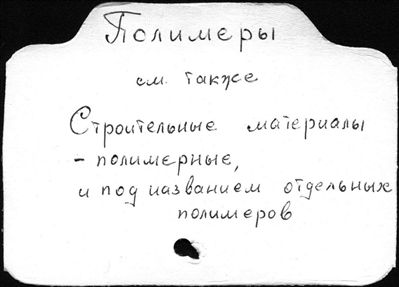 Полимеры
см. также
Строительные материалы
- полимерные,
и под названием отдельных
полимеров